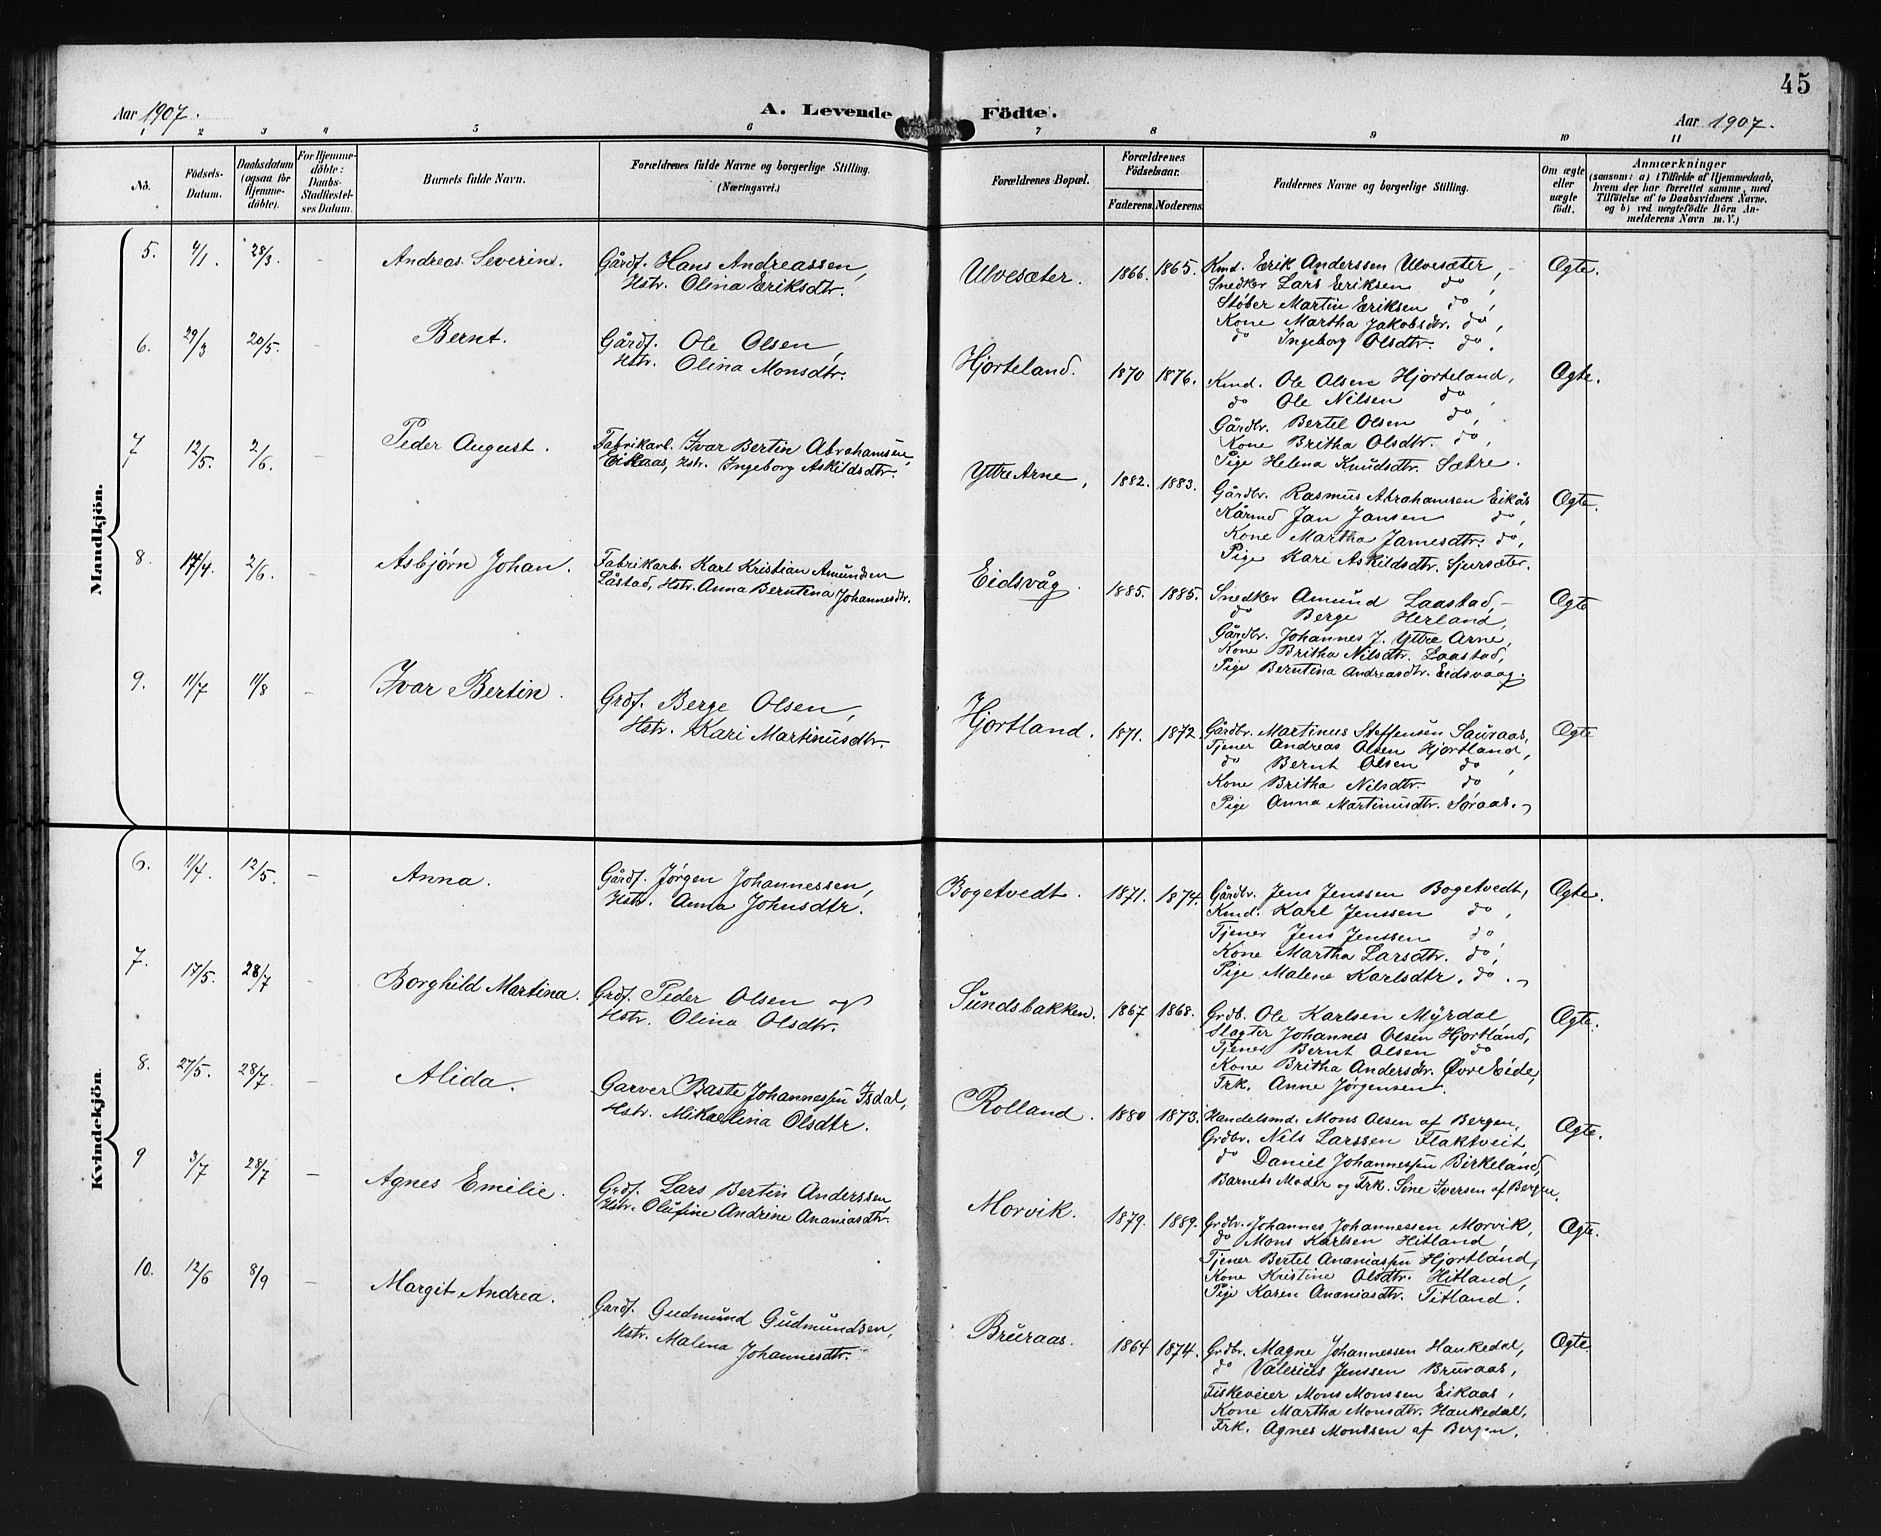 45
Aar 1907. A. Levende Födte. Aar 1907.
1 2 3 4 5 6 7 8 9 10 11
No.
Födsels-
Datum.
Daabsdatum
(ogsaa for
Hjemme-
döbte).
For Hjemme-
döbte:
Daabs-
Stadfæstel-
ses Datum.
Barnets fulde Navn.
Forældrenes fulde Navne og borgerlige Stilling.
(Næringsvei.)
Forældrenes Bopæl.
Forældrenes
Födselsaar.
Faderens. Moderens.
Faddernes Navne og borgerlige Stilling.
Om ægte
eller
uægte
født.
Anmærkninger
(saasom: a) i Tilfælde af Hjemmedaab,
hvem der har forrettet samme, med
Tilföielse af to Daabsvidners Navne,
og b) ved uægtefödte Börn An-
melderens Navn m. V.)
Mandkjön.
5. 4/1. 28/3. – Andreas Severin. Gårdf. Hans Andreassen,
Hstr. Olina Eriksdtr.
Ulvesæter. 1866. 1865. Kmd. Erik Anderssen Ulvesæter, Ægte.
Snedker Lars Eriksen do,
Støber Martin Eriksen do,
Kone Martha Jakobsdtr. do,
do Ingeborg Olsdtr. do.
6. 29/3 20/5. Bernt. Gårdf. Ole Olsen,
Hstr. Olina Monsdtr.
Hjorteland. 1870 1876. Kmd. Ole Olsen Hjorteland, Ægte.
do Ole Nilsen do,
Gårdbr. Bertel Olsen do,
Kone Britha Olsdtr. do,
Pige Helena Knudsdtr. Sætre.
7 12/5. 2/6. – Peder August. Fabrikarb. Ivar Bertin Abrahamsen
Eikaas, Hstr. Ingeborg Askildsdtr.
Yttre Arne, 1882. 1883. Gårdbr. Rasmus Abrahamsen Eikås Ægte.
Kårmd Jan Jansen do,
Kone Martha Jamesdtr. do,
Pige Kari Askildsdtr. Sjursæter.
8. 17/4. 2/6. – Asbjørn Johan. Fabrikarb. Karl Kristian Amundsen
Låstad, Hstr. Anna Berntina Johannesdtr.
Eidsvåg. 1885. 1885. Snedker Amund Laastad, Ægte
do Berge Herland,
Gårdbr. Johannes J. Yttre Arne,
Kone Britha Nilsdtr. Laastad,
Pige Berntina Andreasdtr. Eidsvaag.
9. 11/7 11/8 – Ivar Bertin. Grdf. Berge Olsen,
Hstr. Kari Martinusdtr.
Hjortland. 1871. 1872. Gårdbr. Martinus Steffensen Sauraas, Ægte
Tjener Andreas Olsen Hjortland,
do Bernt Olsen do,
Kone Britha Nilsdtr. do
Pige Anna Martinusdtr. Søraas.
Kvindekjön.
6. 11/4. 12/5. – Anna. Gårdf. Jørgen Johannessen,
Hstr. Anna Johnsdtr.
Bogetvedt. 1871. 1874. Gårdbr. Jens Jenssen Bogetvedt, Ægte.
Kmd. Karl Jenssen do,
Tjener Jens Jenssen do,
Kone Martha Larsdtr. do,
Pige Malene Karlsdtr. do.
7. 17/5. 28/7 – Borghild Martina. Grdf. Peder Olsen og
Hstr. Olina Olsdtr.
Sundsbakken. 1867 1868. Grdb. Ole Karlsen Myrdal Ægte.
Slagter Johannes Olsen Hjortland,
Tjener Bernt Olsen do
Kone Britha Andersdtr. Øvre Eide,
Frk. Anne Jørgensen.
8. 27/5. 28/7. – Alida. Garver Baste Johannessen Isdal,
Hstr. Mikaelina Olsdtr.
Rolland. 1880 1873. Handelsmd. Mons Olsen af Bergen, Ægte.
Grdbr. Nils Larssen Flaktveit,
do Daniel Johannessen Birkeland,
Barnets Moder og Frk. Sine Iversen af Bergen.
9 3/7 28/7 – Agnes Emilie. Grdf. Lars Bertin Anderssen
Hstr. Olufine Andrine Ananiasdtr.
Morvik. 1879. 1889. Grdbr. Johannes Johannessen Morvik, Ægte.
do Mons Karlsen Hitland,
Tjener Bertel Ananiassen Hjortland,
Kone Kristine Olsdtr. Hitland,
Pige Karen Ananiasdtr. Titland.
10. 12/6 8/9 – Margit Andrea. Gardf. Gudmund Gudmundsen,
Hstr. Malena Johannesdtr.
Bruraas. 1864 1874. Grdbr. Magne Johannessen Haukedal, Ægte.
do Valerius Jenssen Bruraas,
Fiskeveier Mons Monssen Eikaas,
Kone Martha Monsdtr. Haukedal,
Frk. Agnes Monssen af Bergen.